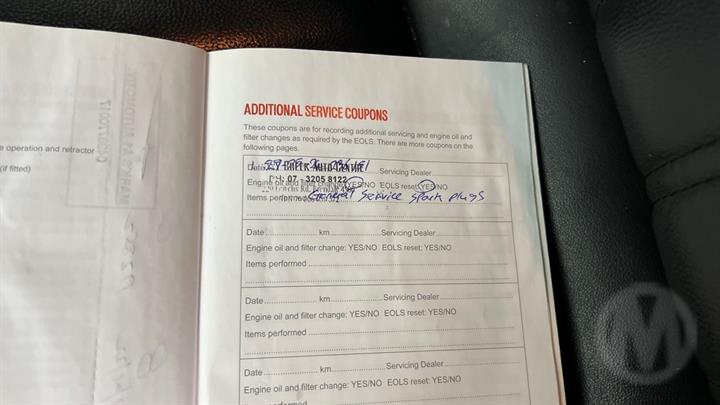 e operation and retractor
(if fitted)
ADDITIONAL SERVICE COUPONS
These coupons are for recording additional servicing and engine oil and
filter changes as required by the EOLS. There are more coupons on the
following pages.
Date Servicing Dealer
AUTO CENTRE
PH: 07 - 3205 8122
Engine oil and filter change: YES/NO EOLS reset: YES/NO
Items performed General Service Spark plugs
Date km Servicing Dealer
Engine oil and filter change: YES/NO EOLS reset: YES/NO
Items performed
Date km Servicing Dealer
Engine oil and filter change: YES/NO EOLS reset: YES/NO
Items performed
Date km Servicing Dealer
Engine oil and filter change: YES/NO EOLS reset: YES/NO
Items performed
M